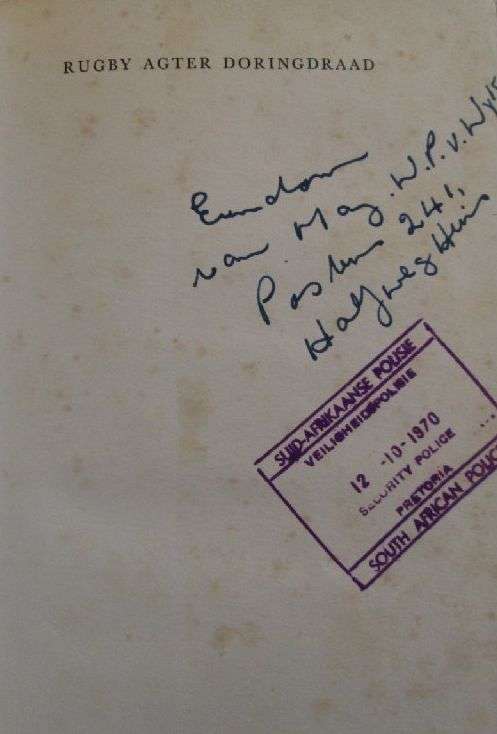 RUGBY AGTER DORINGDRAAD
Eiendom
van Maj. W.P. v. Wyk
Posbus 241,
Halfweghuis
SUID-AFRIKAANSE POLISIE
VEILIGHEIDSPOLISIE
12 -10- 1970
SECURITY POLICE
PRETORIA
SOUTH AFRICAN POLICE